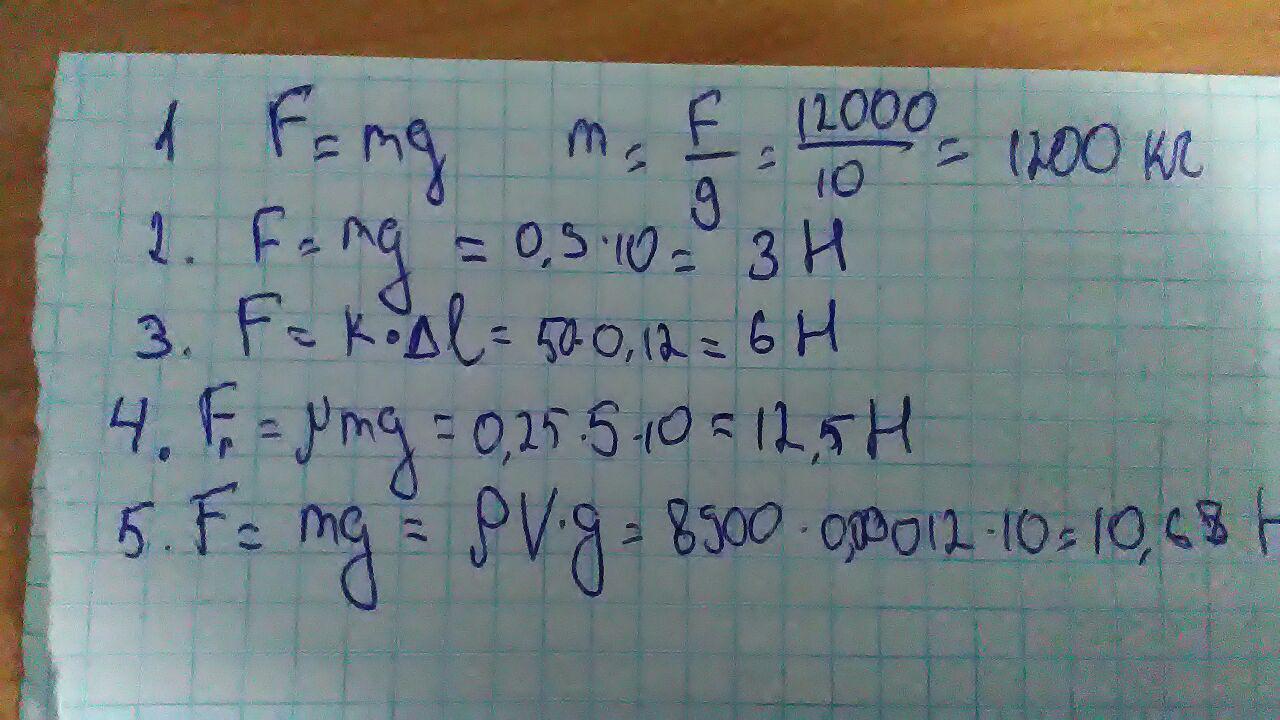 1 F = mg m = F/g = 12000/10 = 1200 кг
2. F = mg = 0,3·10 = 3 Н
3. F = к·Δl = 50·0,12 = 6 Н
4. Fт = μmg = 0,25·5·10 = 12,5 Н
5. F = mg = ρV·g = 8900·0,00012·10 = 10,68 Н